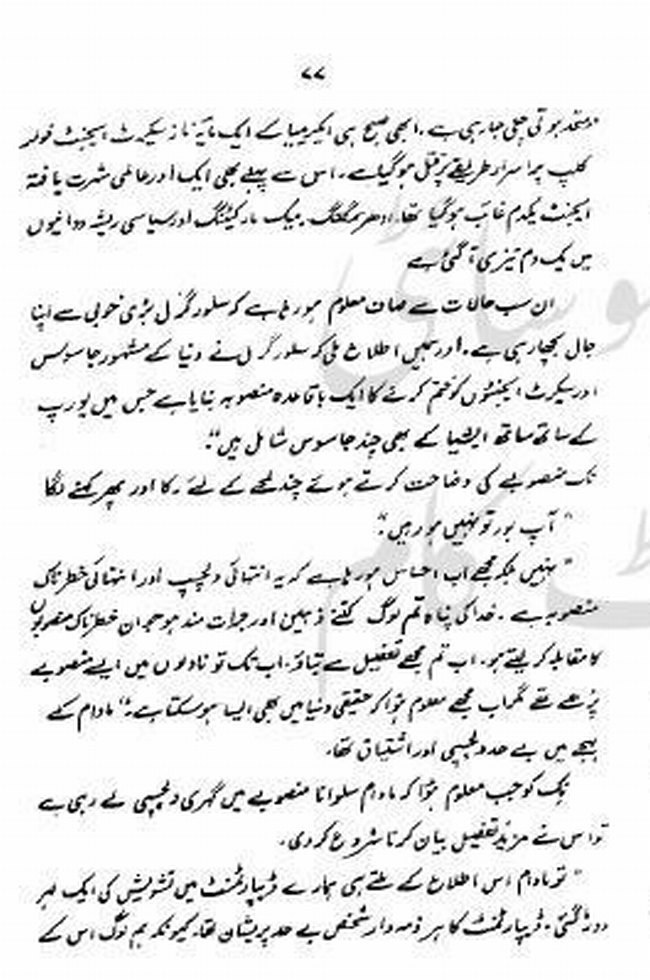 ۷۷
منعقد ہوتی چلی جا رہی ہے۔ ابھی صبح ہی ایکریمیا کے ایک مایہ ناز سیکرٹ ایجنٹ فولر
کلپ پراسرار طریقے پر قتل ہو گیا ہے۔ اس سے پہلے بھی ایک اور عالمی شہرت یافتہ
ایجنٹ یکدم غائب ہو گیا تھا۔ ادھر سمگلنگ۔ بلیک مارکیٹنگ اور سیاسی ریشہ دوانیوں
میں یک دم تیزی آ گئی ہے
ان سب حالات سے صاف معلوم ہو رہا ہے کہ سلور گرل بڑی خوبی سے اپنا
جال بچھا رہی ہے۔ اور ہمیں اطلاع ملی کہ سلور گرل نے دنیا کے مشہور جاسوس
اور سیکرٹ ایجنٹوں کو ختم کرنے کا ایک باقاعدہ منصوبہ بنایا ہے جس میں یورپ
کے ساتھ ساتھ ایشیا کے بھی چند جاسوس شامل ہیں"۔
نک منصوبے کی وضاحت کرتے ہوئے چند لمحے کے لئے رکا اور پھر کہنے لگا
"آپ بور تو نہیں ہو رہیں"۔
"نہیں بلکہ مجھے اب احساس ہو رہا ہے کہ یہ انتہائی دلچسپ اور انتہائی خطرناک
منصوبہ ہے۔ خدا کی پناہ تم لوگ کتنے ذہین اور جرات مند ہو جو ان خطرناک منصوبوں
کا مقابلہ کر لیتے ہو۔ اب تم مجھے تفصیل سے بتاؤ۔ اب تک تو ناولوں میں ایسے منصوبے
پڑھے تھے مگر اب مجھے معلوم ہوا کہ حقیقی دنیا میں بھی ایسا ہو سکتا ہے۔" مادام کے
لہجے میں بے حد دلچسپی اور اشتیاق تھا۔
نک کو جب معلوم ہوا کہ مادام سلوانا منصوبے میں گہری دلچسپی لے رہی ہے
تو اس نے مزید تفصیل بیان کرنا شروع کر دی۔
"تو مادام اس اطلاع کے ملتے ہی ہمارے ڈیپارٹمنٹ میں تشویش کی ایک لہر
دوڑ گئی۔ ڈیپارٹمنٹ کا ہر ذمہ دار شخص بے حد پریشان تھا۔ کیونکہ ہم لوگ اس کے